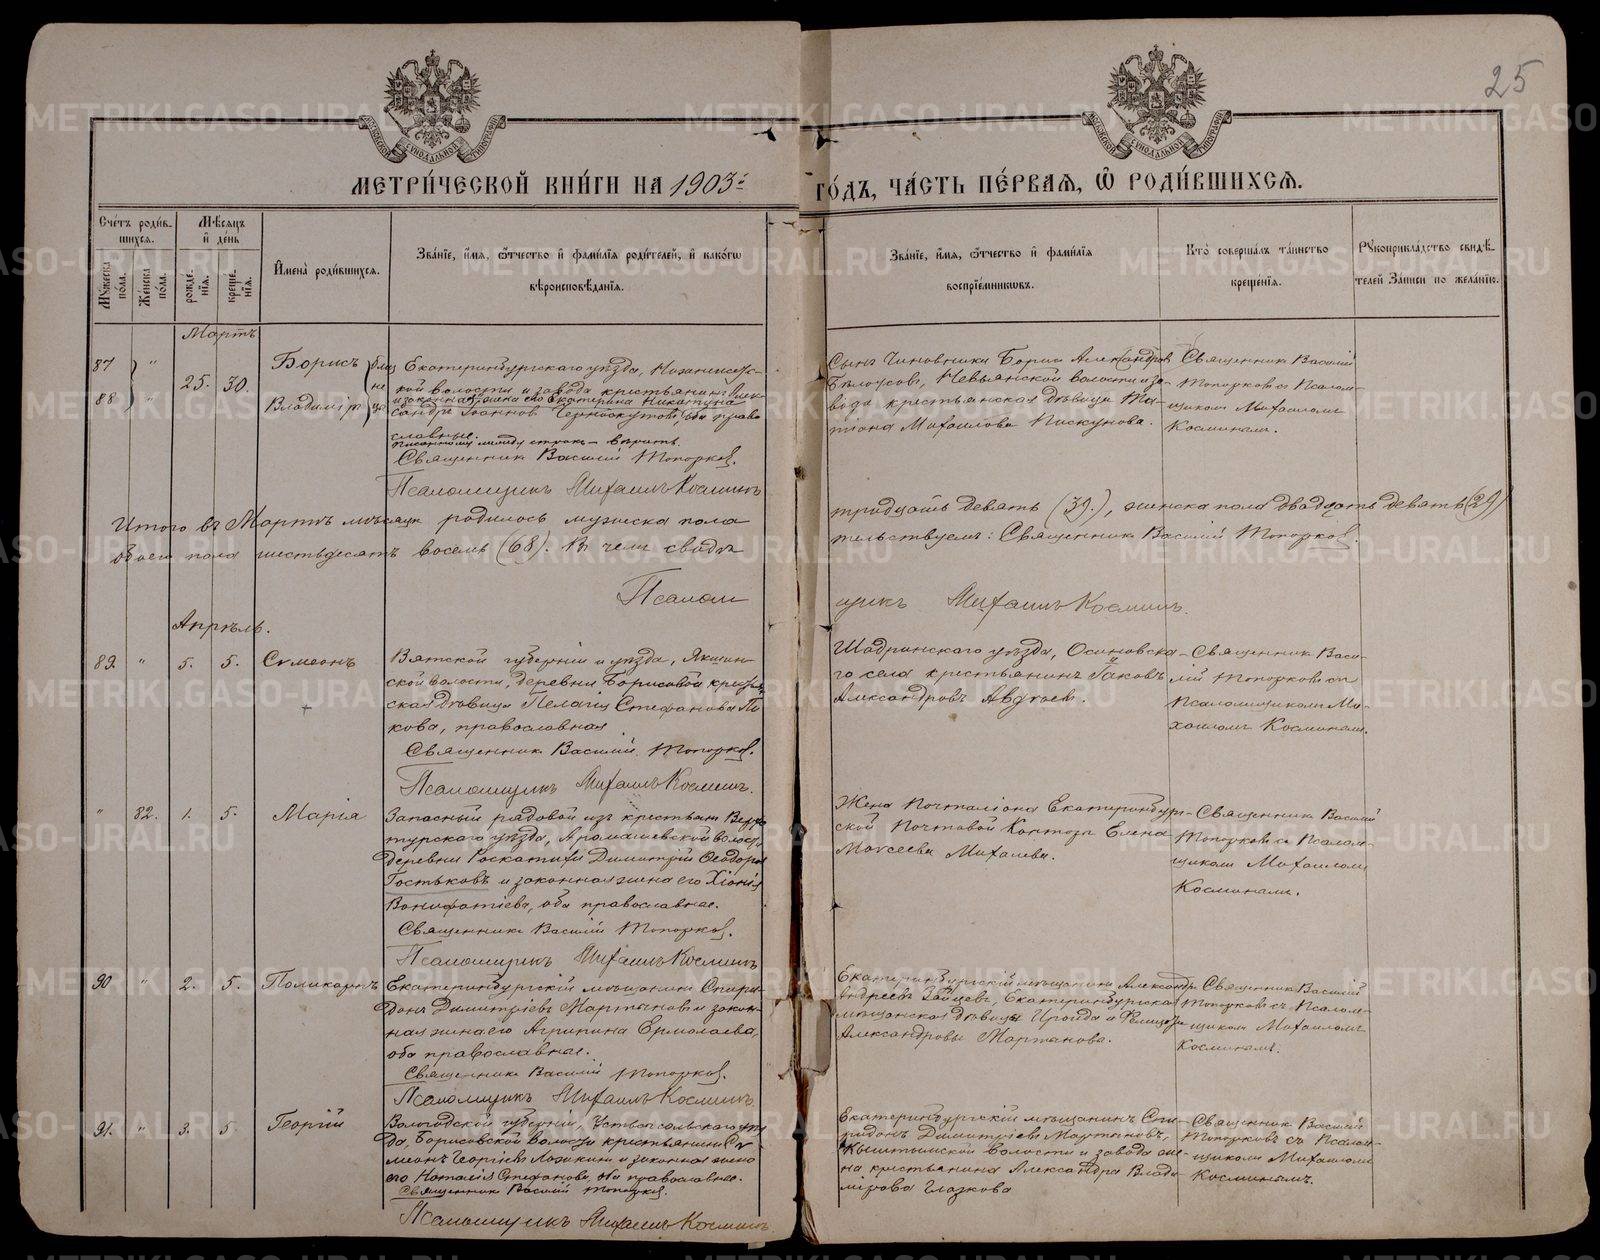 25
РОССІЙСКОЙ СѴНОДАЛЬНОЙ ТИПОГРАФІИ
МЕТРИ́ЧЕСКОЙ КНИ́ГИ НА 1903й
ГО́ДЪ, ЧА́СТЬ ПЕ́РВАЯ, Ѡ РОДИ́ВШИХСЯ.
Счетъ роди́в-
шихся.
Мѣсяцъ
и день
Му́жеска по́ла.
Же́нска по́ла.
рожде-
нія.
креще-
нія.
Имена роди́вшихся.
Зва́ніе, и́мя, ѻтчество и фами́лія роди́телей, и како́гѡ
вѣроисповѣданія.
Зва́ніе, и́мя, ѻтчество и фами́лія
воспріе́мниковъ.
Кто̀ соверша́лъ та́инство
креще́нія.
Рукоприкла́дство свидѣ́-
телей за́писи по жела́нію.
Мартъ
87 " 25. 30. Борисъ
88 " Владиміръ
близ
не
цы
Екатеринбургскаго уѣзда, Нязепетров-
ской волости и завода крестьянинъ Алек-
и законная жена его Екатерина Никитина
сандръ Іоанновъ Черноскутовъ, оба право
славные.
Писанному между строкъ – вѣрить.
Священникъ Василій Топорковъ.
Псаломщикъ Михаилъ Косминъ
Сынъ Чиновника Борисъ Александровъ
Бѣлоусовъ, Невьянской волости и за-
вода крестьянская дѣвица Та-
тіана Михаилова Пискунова.
Священникъ Василій
Топорковъ съ Псалом-
щикомъ Михаиломъ
Косминымъ.
Итого въ Мартѣ мѣсяцѣ родилось мужеска пола
тридцать девять (39.), женска пола двадцать девять (29)
обоего пола шестьдесятъ восемь (68). Въ чемъ свидѣ
тельствуемъ: Священникъ Василій Топорковъ.
Псалом
щикъ Михаилъ Косминъ.
Апрѣль.
89. " 5. 5. Сѵмеонъ
Вятской губерніи и уѣзда,
ской волости, деревни Борисовой крестьян
ская дѣвица Пелагія Стефанова
кова, православная
Священникъ Василій Топорковъ.
Псаломщикъ Михаилъ Косминъ.
Шадринскаго уѣзда, Осиновска-
го села крестьянинъ Іаковъ
Александровъ Авдѣевъ.
Священникъ Васи-
лій Топорковъ съ
Псаломщикомъ Ми-
хаиломъ Косминымъ.
" 82. 1. 5. Марія
Запасный рядовой изъ крестьянъ Верхо
турскаго уѣзда, Арамашевской волости,
деревни Роскатихи Димитрій Ѳеодоровъ
Гостьковъ и законная жена его Хіонія
Вонифатіева, оба православные.
Священникъ Василій Топорковъ.
Псаломщикъ Михаилъ Косминъ
Жена Почталіона Екатеринбург-
ской Почтовой Конторы Елена
Моѵсеева Михалева.
Священникъ Василій
Топорковъ съ Псалом-
щикомъ Михаиломъ
Косминымъ.
90 " 2. 5. Поликарпъ
Екатеринбургскій мѣщанинъ Спири-
донъ Димитріевъ Мартыновъ и закон-
ная жена его Агрипина Ермолаева,
оба православные.
Священникъ Василій Топорковъ.
Псаломщикъ Михаилъ Косминъ.
Екатеринбургскій мѣщанинъ Александръ
Андреевъ Зайцевъ, Екатеринбургская
мѣщанская дѣвица Ираида
Александровы
Священникъ Василій
Топорковъ съ Псалом-
щикомъ Михаиломъ
Косминымъ.
91. " 3. 5 Георгій
Вологодской губерніи, Устьсысольскаго уѣз
да, Борисовской волости крестьянинъ Сѵ
меонъ Георгіевъ и законная жена
его Наталія Стефанова, оба православные.
Священникъ Василій Топорковъ.
Псаломщикъ Михаилъ Косминъ.
Екатеринбургскій мѣщанинъ Спи-
ридонъ Димитріевъ Мартыновъ,
Кыштымской волости и завода же-
на крестьянина Александра Влади
мірова Глазкова
Священникъ Василій
Топорковъ съ Псалом-
щикомъ Михаиломъ
Косминымъ.
METRIKI.GASO-URAL.RU